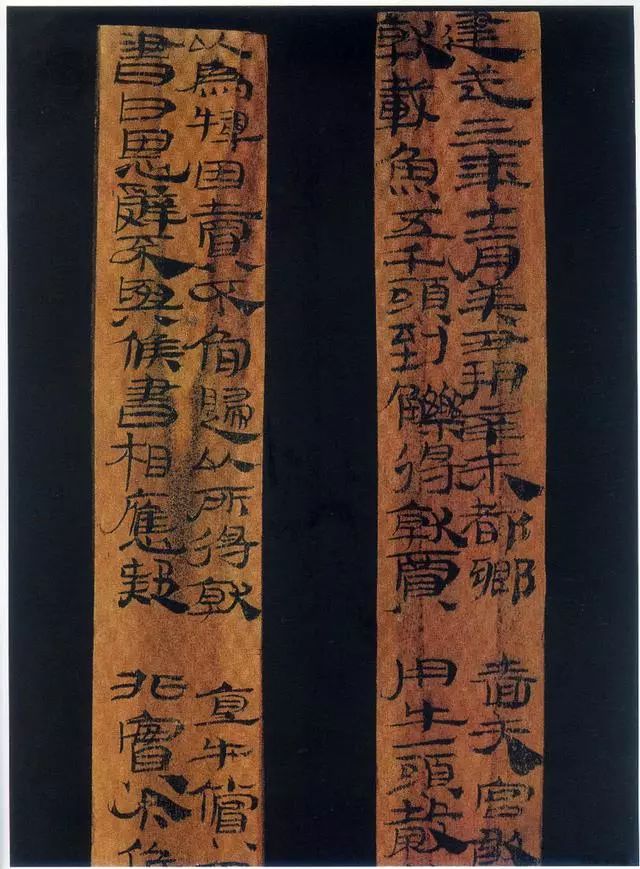 建武三年十二月癸丑朔辛未都鄉 嗇夫宮敢
就載魚五千頭到觻得就賈 用牛一頭穀
以為犅因賣不肯歸以所得就 直牛償不
書曰恩辭不與候書相應疑 非實今候